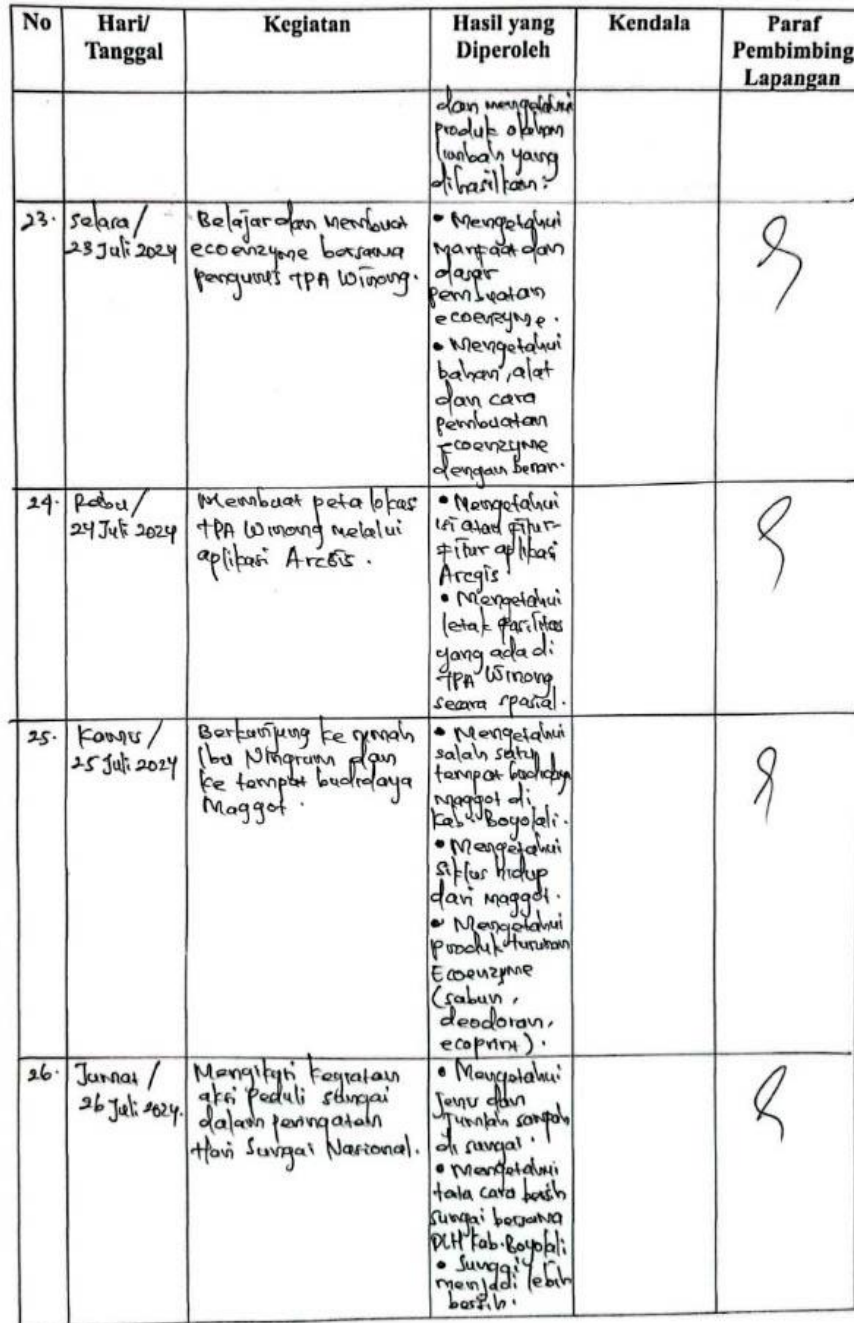 No
Hari/
Tanggal
Kegiatan
Hasil yang
Diperoleh
Kendala
Paraf
Pembimbing
Lapangan
dan mengetahui
produk olahan
limbah yang
dihasilkan.
23.
Selasa /
23 Juli 2024
Belajar dan Membuat
ecoenzyme bersama
pengurus TPA Winong.
• Mengetahui
Manfaat dan
dasar
pembuatan
ecoenzyme.
• Mengetahui
bahan, alat
dan cara
pembuatan
Ecoenzyme
dengan benar.
24.
Rabu /
24 Juli 2024
Membuat peta lokasi
TPA Winong melalui
aplikasi ArcGis.
• Mengetahui
isi atau fitur-
fitur aplikasi
Arcgis
• Mengetahui
letak fasilitas
yang ada di
TPA Winong
secara spasial.
25.
Kamis /
25 Juli 2024
Berkunjung ke rumah
Ibu Ningrum dan
ke tempat budidaya
Maggot.
• Mengetahui
salah satu
tempat budidaya
Maggot di
Kab. Boyolali.
• Mengetahui
siklus hidup
dari maggot.
• Mengetahui
produk turunan
Ecoenzyme
(sabun,
deodoran,
ecoprint).
26.
Jumat /
26 Juli 2024.
Mengikuti kegiatan
aksi peduli sungai
dalam peringatan
Hari Sungai Nasional.
• Mengetahui
Jenis dan
Jumlah sampah
di sungai.
• Mengetahui
tata cara bersih
sungai bersama
DLH Kab. Boyolali
• Sungai
menjadi lebih
bersih.